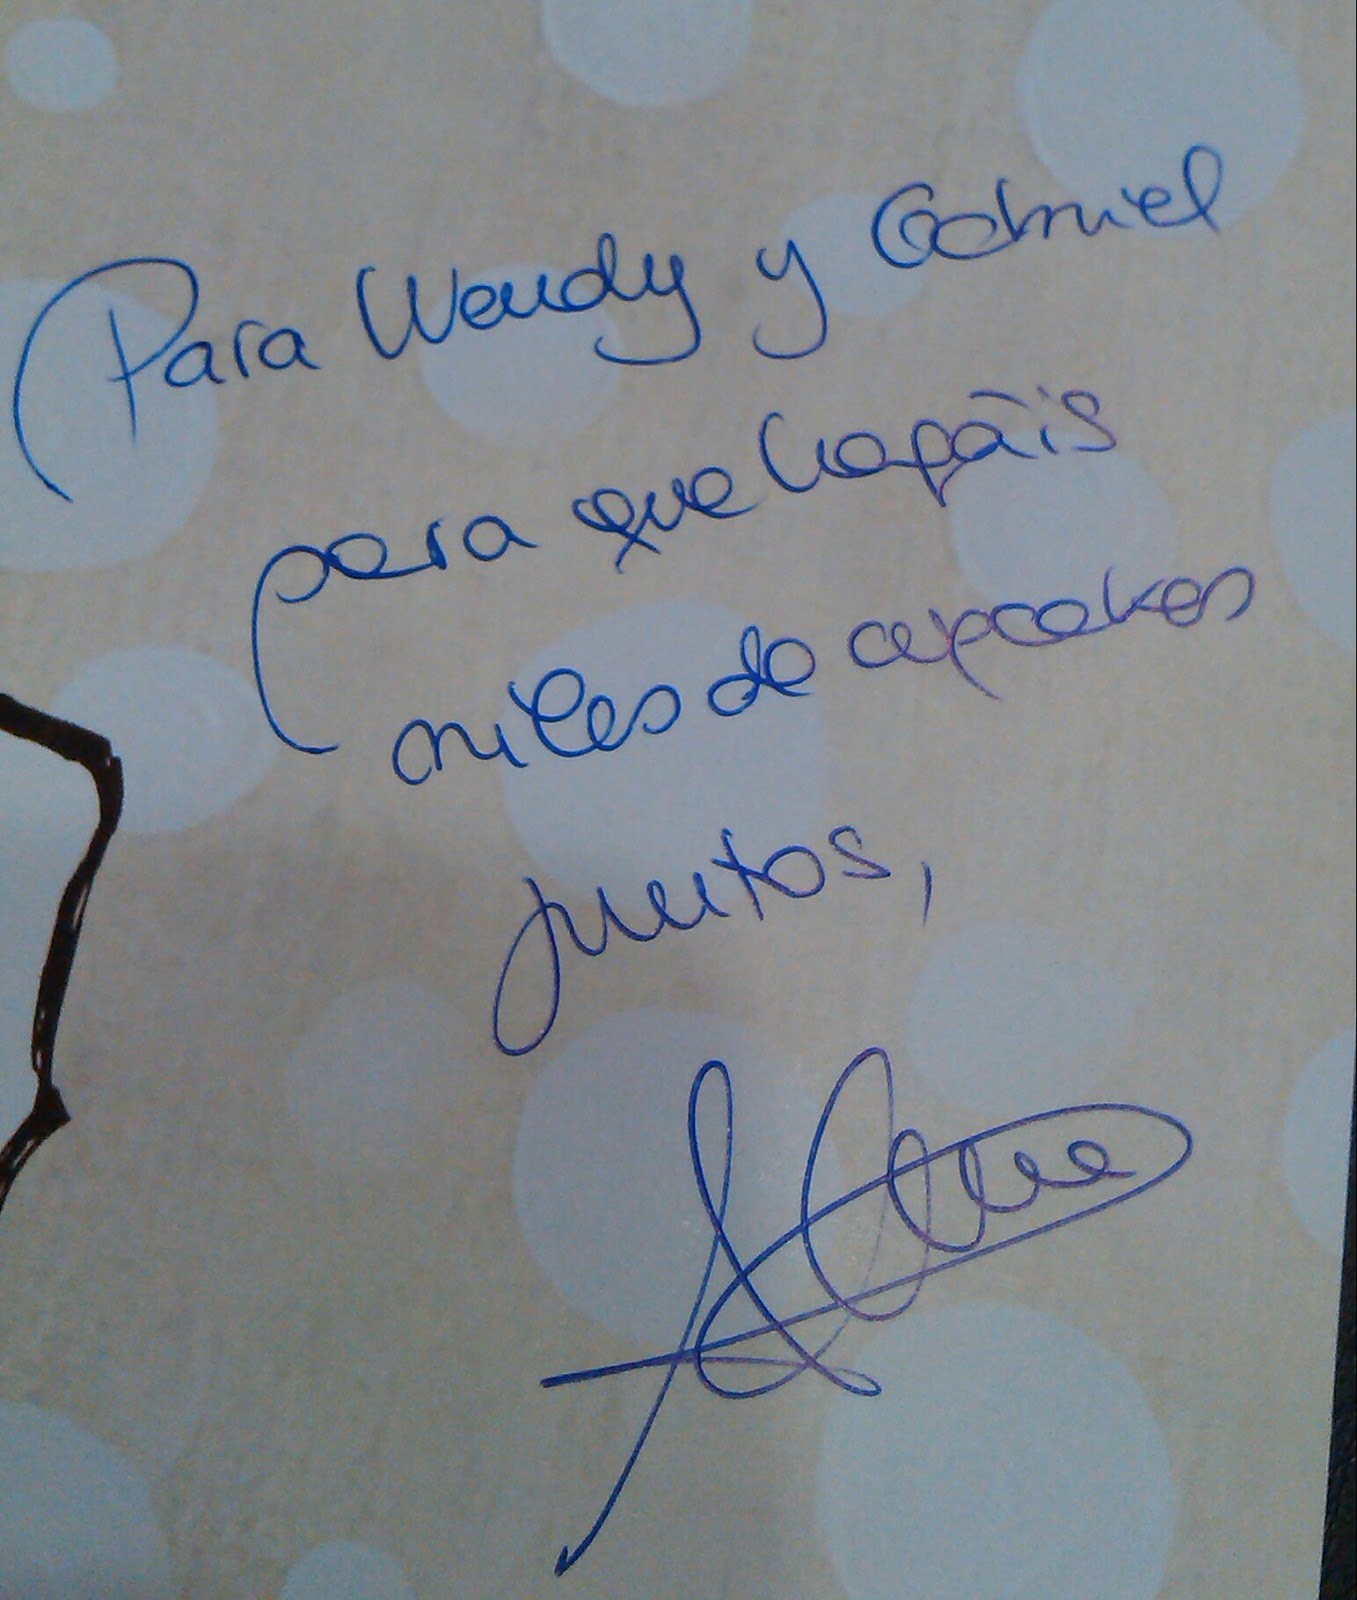 Para Wendy y Gabriel
para que hagáis
miles de cupcakes
juntos,